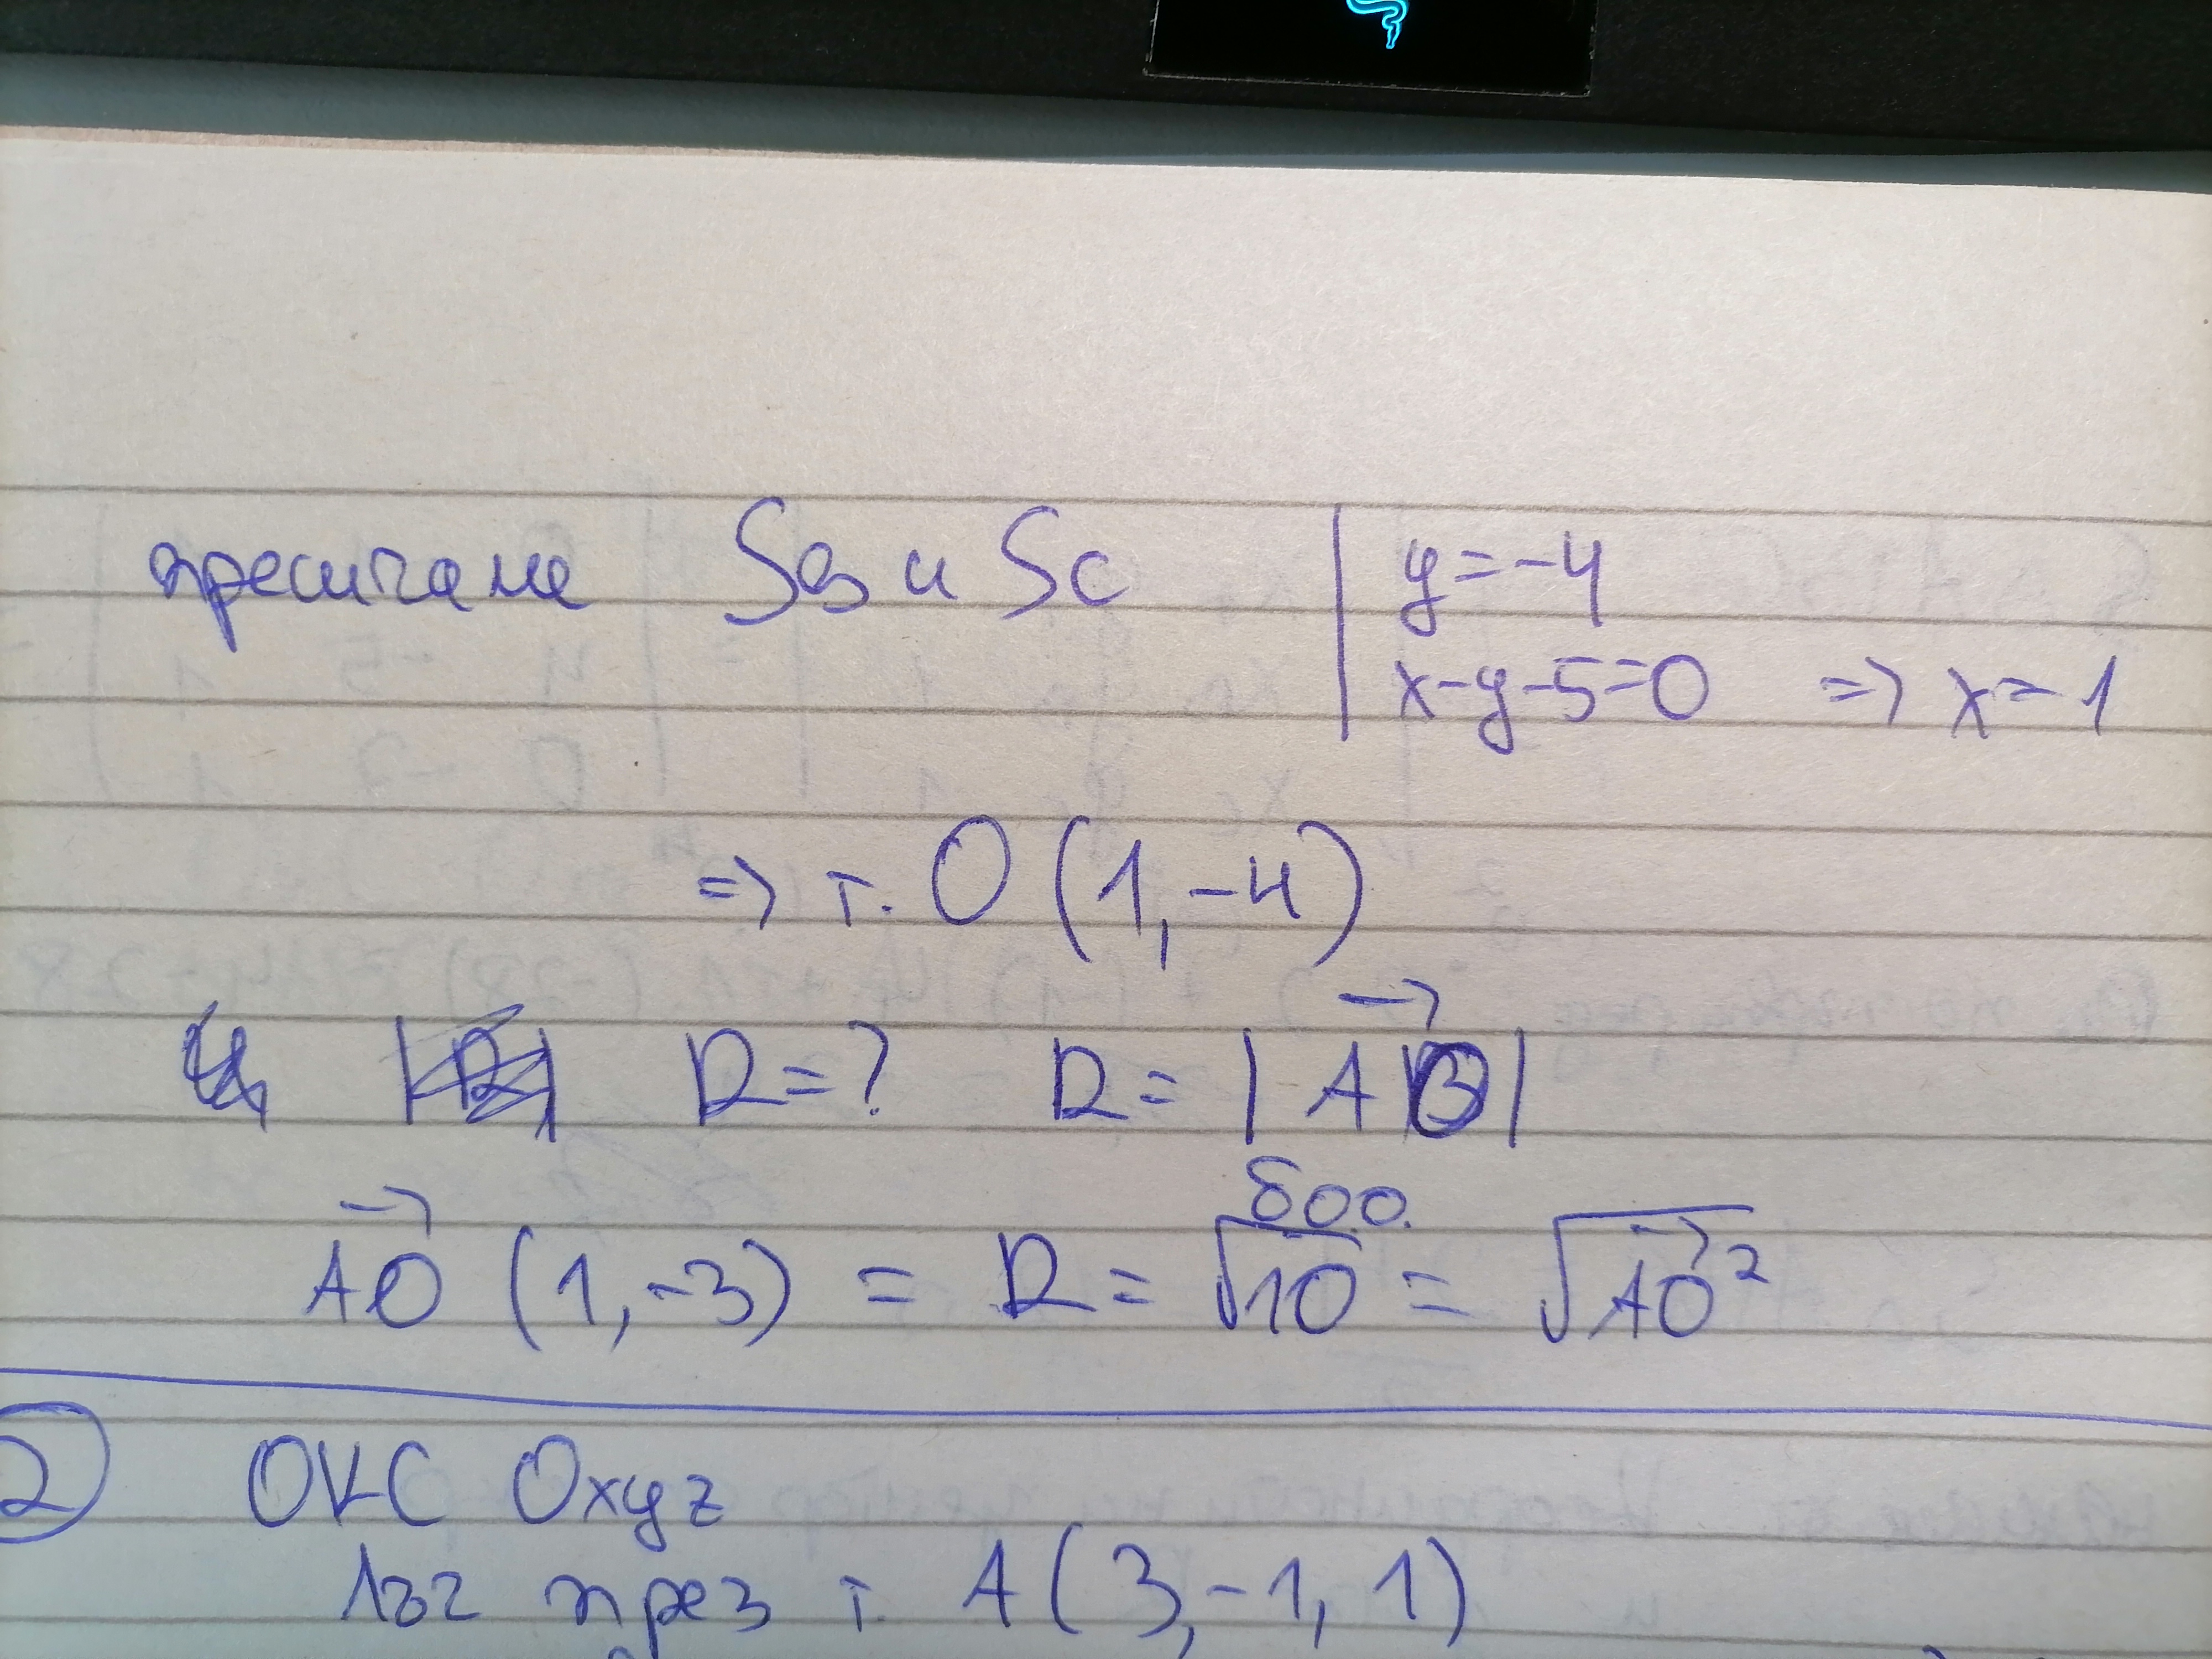 пресичаме S_B и S_C | y=-4
x-y-5=0 => x=1
=> т. O (1,-4)
R=? R=|AO|
AO (1,-3) = R = √10 = √AO²
δοο.
2 ОКС Oxyz
лъч през т. A(3,-1,1)